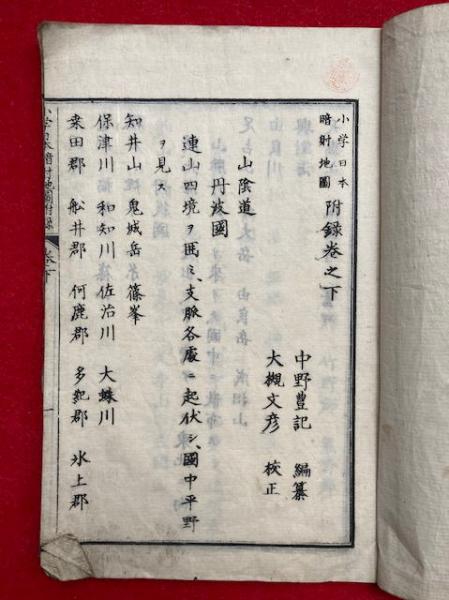 小学日本
暗射地圖 附録卷之下
中野豊記 編纂
大槻文彦 校正
山陰道
丹波國
連山四境ヲ囲ミ、支脈各處ニ起伏シ、國中平野
ヲ見ス
知井山 鬼城岳 篠峯
保津川 和知川 佐治川 大蛛川
桒田郡 舩井郡 何鹿郡 多紀郡 氷上郡
小学日本暗射地圖附録 卷之下